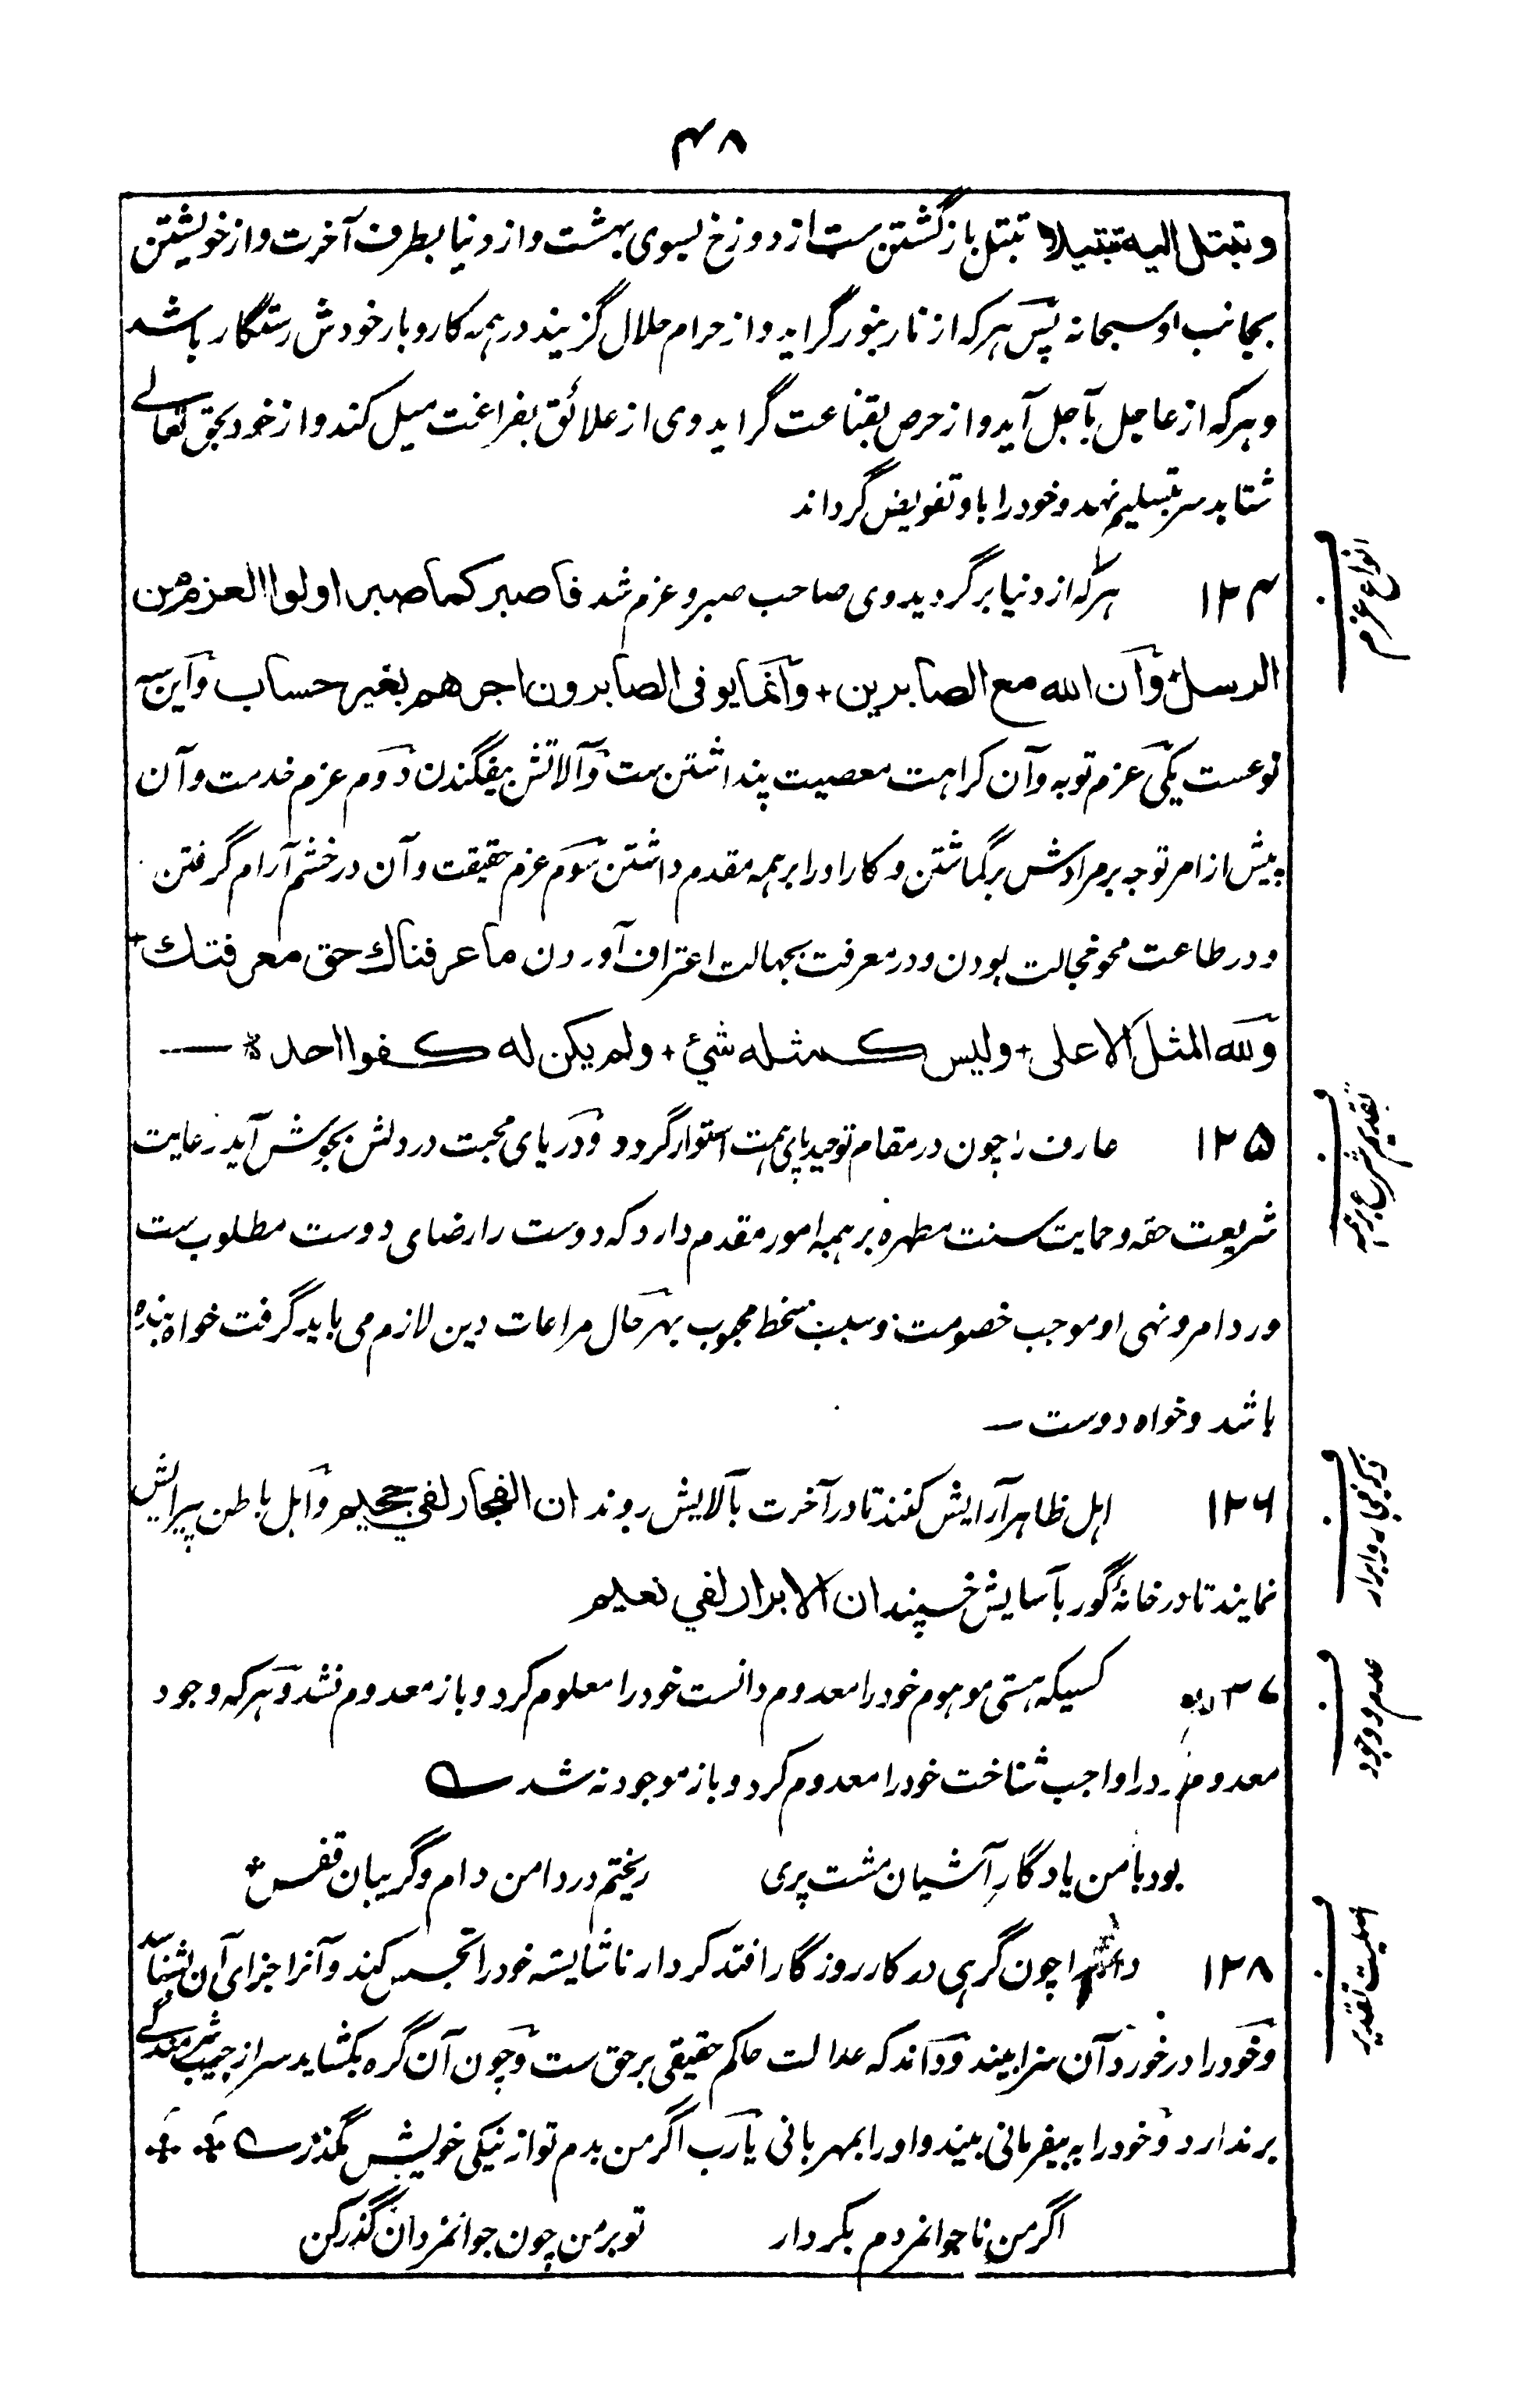 ۴۸
وتبتل الیه تبتیلا تبتل بازگشتن ست از دوزخ بسوی بهشت و از دنیا بطرف آخرت و از خویشتن
بجانب او سبحانه پس هرکه از نار بنور گراید و از حرام حلال گزیند در همه کاروبار خودش رستگار باشد
و هرکه از عاجل بآجل آید و از حرص بقناعت گراید وی از علائق بفراغت میل کند و از خود بحق تعالے
شتابد سر بتسلیم نهد و خود را باو تفویض گرداند
انواع عزم
۱۲۴ هرکه از دنیا برگردید وی صاحب صبر و عزم شد فاصبر کما صبر اولوا العزم من
الرسل + وان الله مع الصابرین + وانما یوفی الصابرون اجرهم بغیر حساب و این سه
نوعست یکی عزم توبه و آن کراهت معصیت پنداشتن ست و آلاتش بیفگندن دوم عزم خدمت و آن
پیش از امر توجه بر مرادش برگماشتن و کار او را بر همه مقدم داشتن سوم عزم حقیقت و آن در خشم آرام گرفتن
و در طاعت محو خجالت بودن و در معرفت بجهالت اعتراف آوردن ما عرفناك حق معرفتك +
ولله المثل الاعلی + ولیس کمثله شيئ + ولم یکن له کفوا احد ـــ
تقدیم شرع بر همه
۱۲۵ عارف را چون در مقام توحید پای همت استوار گردد و دریای محبت در دلش بجوش آید رعایت
شریعت حقه و حمایت سنت مطهره بر همه امور مقدم دارد که دوست را رضای دوست مطلوب ست
و رد امر و نهی او موجب خصومت و سبب سخط محبوب بهر حال مراعات دین لازم می باید گرفت خواه بنده
باشد و خواه دوست ــ
ذکر فجار و ابرار
۱۲۶ اهل ظاهر آرایش کنند تا در آخرت بآلایش روند ان الفجار لفي جحیم و اهل باطن پیرایش
نمایند تا در خانهٔ گور بآسایش خسپند ان الابرار لفي نعیم
عدم و وجود
کسیکه هستی موهوم خود را معدوم دانست خود را معلوم کرد و باز معدوم نشد و هرکه وجود
معدوم را واجب شناخت خود را معدوم کرد و باز موجود نه شد
بود با من یادگارِ آشیان مشت پری ریختم در دامن دام و گریبان قفس
اصلیت تقدیر
۱۲۸ چون گرهی در کار روزگار افتد کردار ناشایسته خود را تجسس کند و آنرا جزای آن شناسد
و خود را درخورد آن سزا بیند و داند که عدالت حاکم حقیقی بر حق ست و چون آن گره بکشاید سر از جیب شرمندگے
برندارد و خود را به بیفرمانی بیند و او را بمهربانی یارب اگر من بدم تو از نیکی خویش مگذر
اگر من ناجوانمردم بکردار تو بر من چون جوانمردان گذر کن